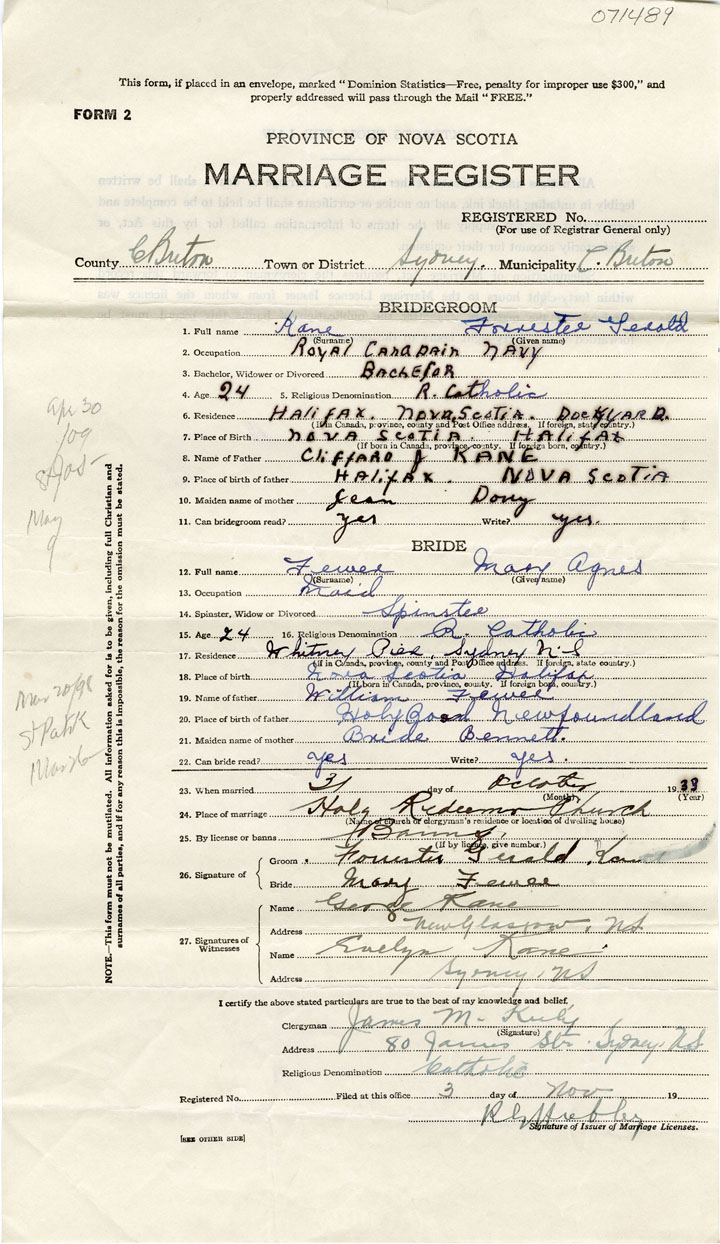 071489
This form, if placed in an envelope, marked "Dominion Statistics—Free, penalty for improper use $300," and
properly addressed will pass through the Mail "FREE."
FORM 2
PROVINCE OF NOVA SCOTIA
MARRIAGE REGISTER
REGISTERED No.
(For use of Registrar General only)
County C Breton Town or District Sydney. Municipality C. Breton
BRIDEGROOM
1. Full name Kane Forrester Gerald
(Surname) (Given name)
2. Occupation Royal Canadain Navy
3. Bachelor, Widower or Divorced Bachelor
4. Age 24 5. Religious Denomination R. Catholic
6. Residence Halifax. Nova Scotia. Dockyard.
(If in Canada, province, county and Post Office address. If foreign, state country.)
7. Place of Birth Nova Scotia. Halifax
(If born in Canada, province, county. If foreign born, country.)
8. Name of Father Cliffard J Kane
9. Place of birth of father Halifax. Nova Scotia
10. Maiden name of mother Jean
11. Can bridegroom read? yes Write? yes.
BRIDE
12. Full name Fewer Mary Agnes
(Surname) (Given name)
13. Occupation Maid
14. Spinster, Widow or Divorced Spinster
15. Age 24 16. Religious Denomination R. Catholic
17. Residence Whitney Pier, Sydney N-S
(If in Canada, province, county and Post Office address. If foreign, state country.)
18. Place of birth Nova Scotia Halifax
(If born in Canada, province, county. If foreign born, country.)
19. Name of father William Fewer
20. Place of birth of father Newfoundland
21. Maiden name of mother Bride Bennett.
22. Can bride read? yes Write? yes.
23. When married 31 day of October 1938
(Month) (Year)
24. Place of marriage Holy Redeemer Church
(Name of church or clergyman's residence or location of dwelling house)
25. By license or banns Banns.
(If by license, give number.)
26. Signature of
Groom Forrester Gerald Kane
Bride Mary Fewer
27. Signatures of Witnesses
Name George Kane
Address New Glasgow, NS
Name Evelyn Kane
Address Sydney, NS
I certify the above stated particulars are true to the best of my knowledge and belief,
Clergyman James M.
(Signature)
Address 80 James Str. Sydney. N.S
Religious Denomination Catholic
Registered No. Filed at this office 3 day of Nov 19
Signature of Issuer of Marriage Licenses.
[SEE OTHER SIDE]
NOTE—This form must not be mutilated. All information asked for is to be given, including full Christian and
surnames of all parties, and if for any reason this is impossible, the reason for the omission must be stated.
Apr 30
/09
May
9
St Patk